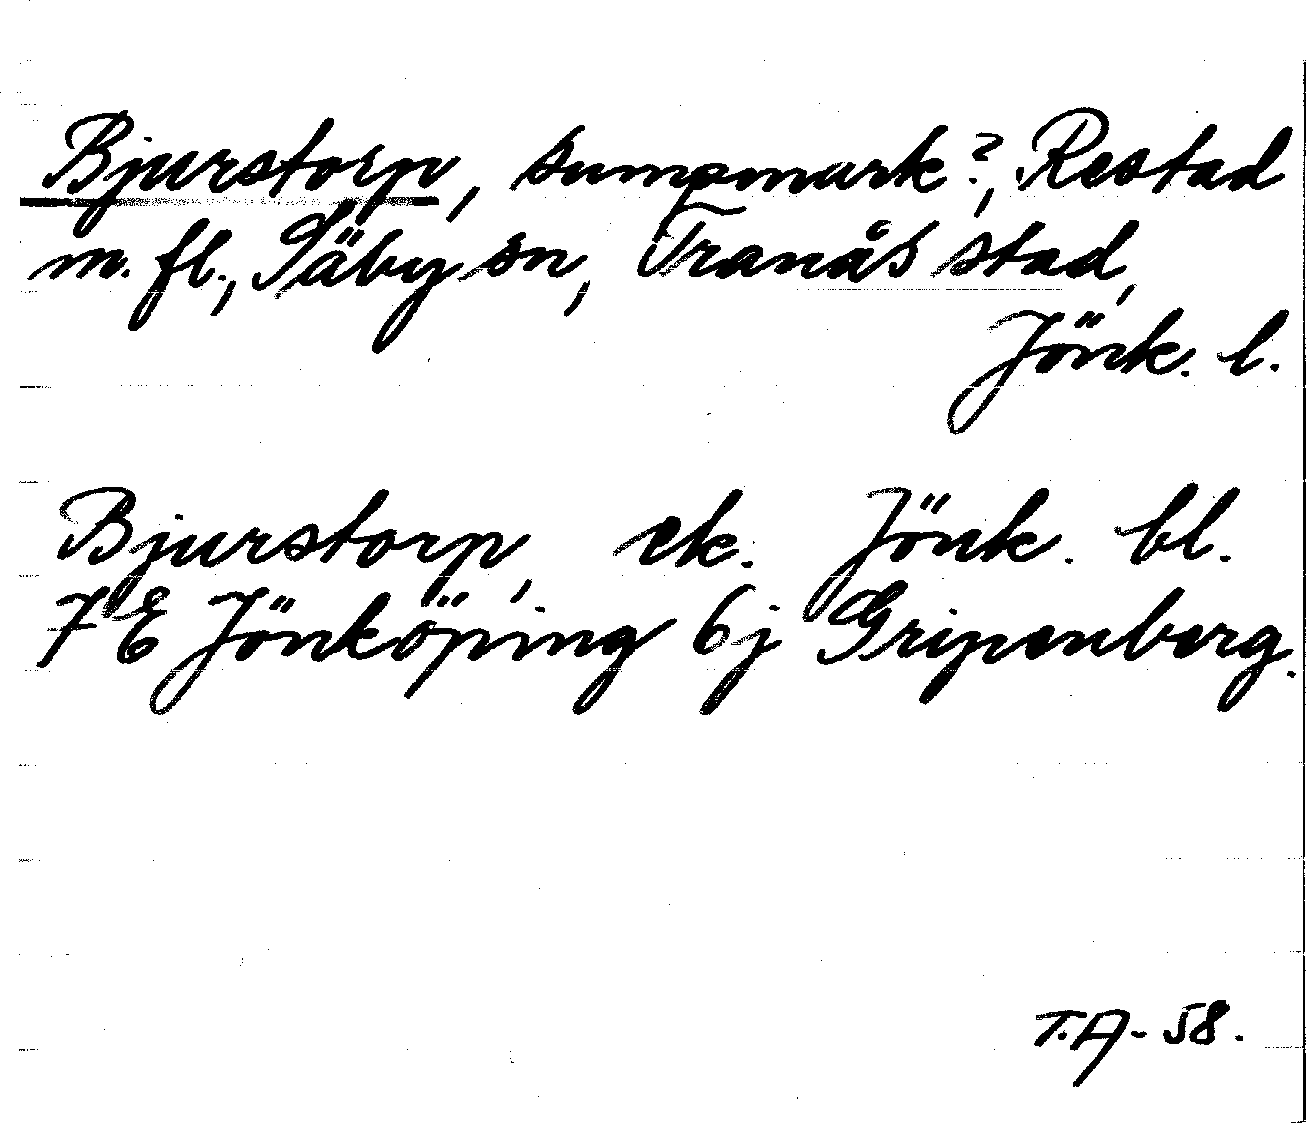 Bjurstorp, sumpmark?, Restad
m. fl., Säby sn, Tranås stad,
Jönk. l.
Bjurstorp, ek. Jönk. bl.
7 E Jönköping 6j Gripenberg.
T.A-58.